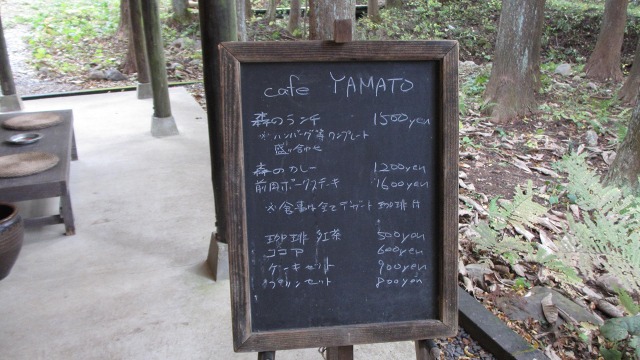 cafe YAMATO
森のランチ 1500yen
※ハンバーグ等ワンプレート
盛り合わせ
森のカレー 1200yen
前岡ポークステーキ 1600yen
※食事全てデザート 珈琲付
珈琲 紅茶 500yen
ココア 600yen
ケーキセット 900yen
プリンセット 800yen